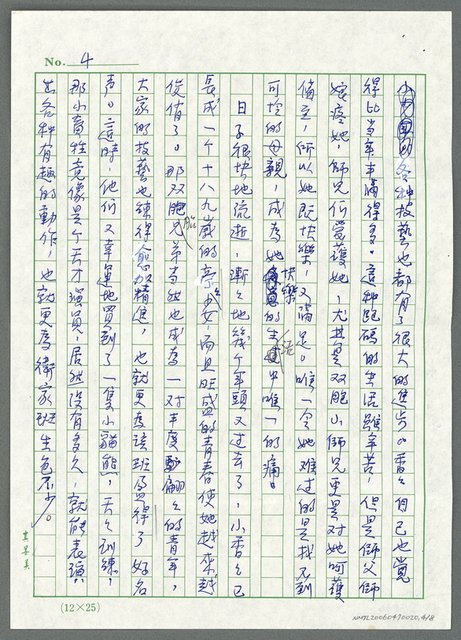 No. 4
各种技藝也都有了很大的進步。香香自己也覺
得比当年丰滿得多。這种跑碼的生活雖辛苦，但是师父师
娘疼她，師兄们爱護她，尤其是双胞小師兄更是对她呵護
備至，所以她既快樂，又滿足。唯一令她难过的是找不到
可怜的母親，成為她快樂的生活中唯一的痛。
日子很快地流逝，漸漸地幾个年頭又过去了，小香香已
長成一个十八九歲的亭亭少女，而且旺盛的青春使她越來越
俊俏了。那双胞胎兄弟当然也成為一对丰度翩翩的青年，
大家的技藝也練得愈加精進，也就更為該班子贏得了好名
声。這時，他们又幸運地買到了一隻小貓熊，天天訓練，
那小畜牲竟像是个天才演員，居然没有多久，就能表演
出各种有趣的動作，也就更為衛家班生色不少。
(12×25)
NMTL20060470020.4/8